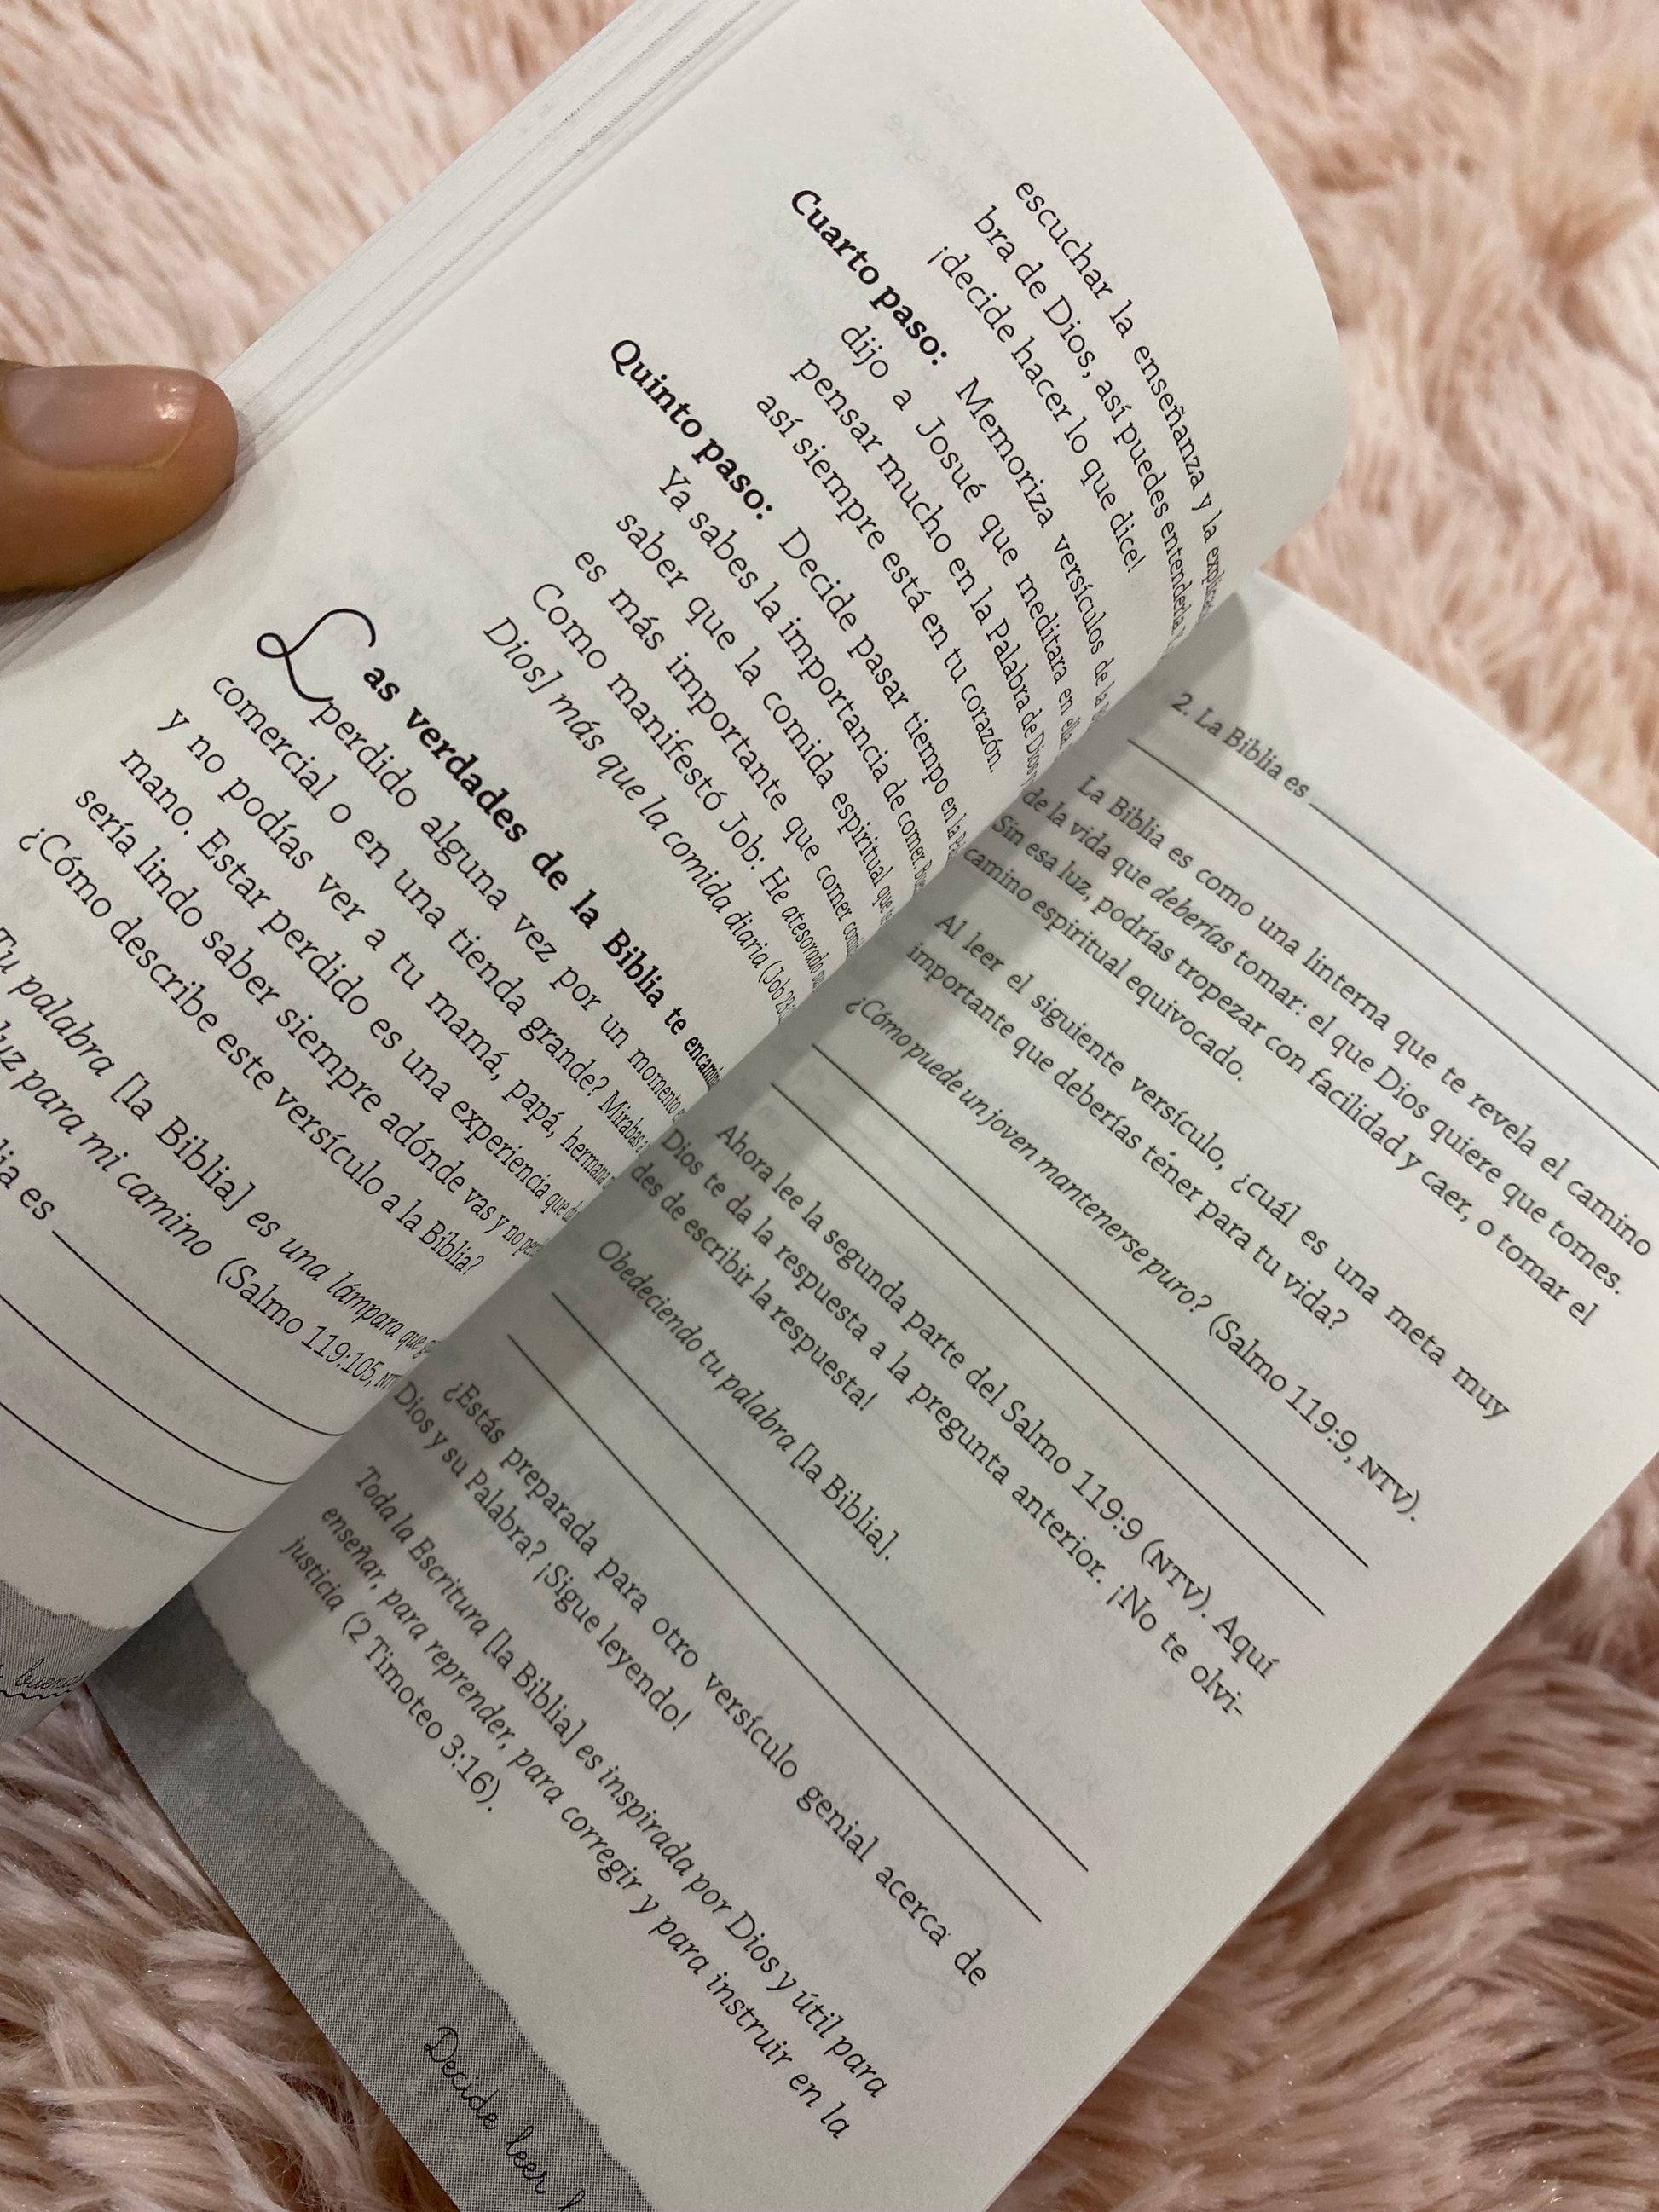 escuchar la enseñanza y la
bra de Dios, así puedes entenderla
¡decide hacer lo que dice!
Cuarto paso: Memoriza versículos de
dijo a Josué que meditara en
pensar mucho en la Palabra de Dios
así siempre está en tu corazón.
Quinto paso: Decide pasar tiempo en la
Ya sabes la importancia de comer.
saber que la comida espiritual que
es más importante que comer
Como manifestó Job: He atesorado
Dios] más que la comida diaria (Job
Las verdades de la Biblia te
perdido alguna vez por un momento
comercial o en una tienda grande? Mirabas
y no podías ver a tu mamá, papá, hermana
mano. Estar perdido es una experiencia que
sería lindo saber siempre adónde vas y no
¿Cómo describe este versículo a la Biblia?
Tu palabra [la Biblia] es una lámpara que
luz para mi camino (Salmo 119:105,
es
2. La Biblia es
La Biblia es como una linterna que te revela el camino
de la vida que deberías tomar: el que Dios quiere que tomes.
Sin esa luz, podrías tropezar con facilidad y caer, o tomar el
camino espiritual equivocado.
Al leer el siguiente versículo, ¿cuál es una meta muy
importante que deberías tener para tu vida?
¿Cómo puede un joven mantenerse puro? (Salmo 119:9, NTV).
Ahora lee la segunda parte del Salmo 119:9 (NTV). Aquí
Dios te da la respuesta a la pregunta anterior. ¡No te olvi-
des de escribir la respuesta!
Obedeciendo tu palabra [la Biblia].
¿Estás preparada para otro versículo genial acerca de
Dios y su Palabra? ¡Sigue leyendo!
Toda la Escritura [la Biblia] es inspirada por Dios y útil para
enseñar, para reprender, para corregir y para instruir en la
justicia (2 Timoteo 3:16).
Decide leer